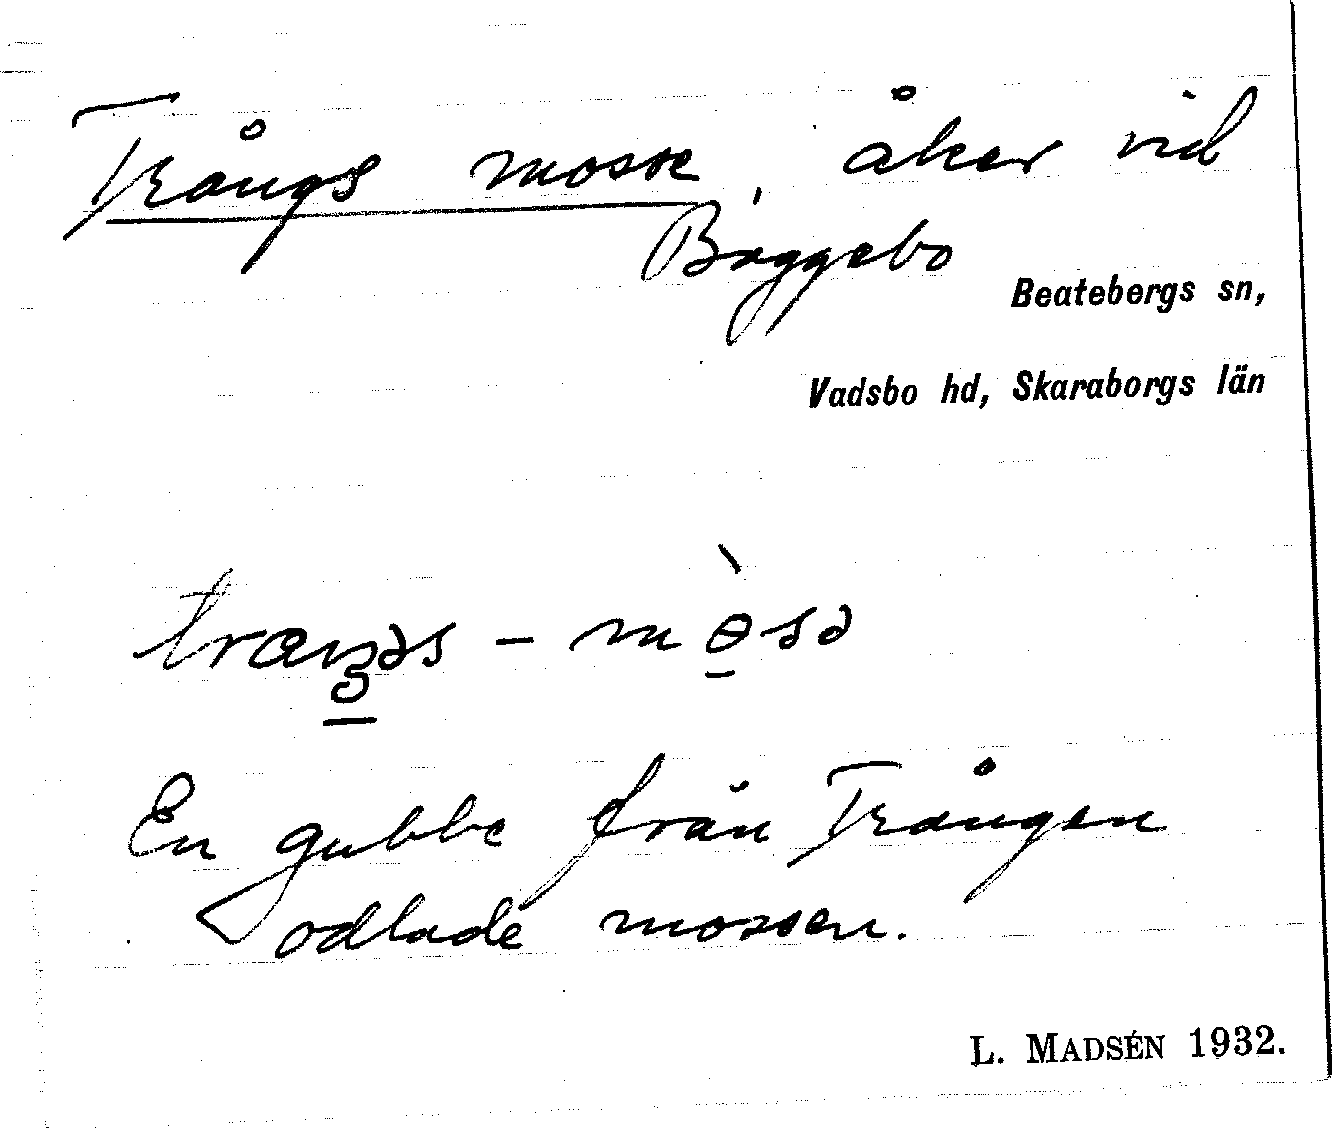 Trångs mosse, åker vid
Bäggebo
Beatebergs sn,
Vadsbo hd, Skaraborgs län
En gubbe från Trången
odlade mossen.
L. MADSÉN 1932.